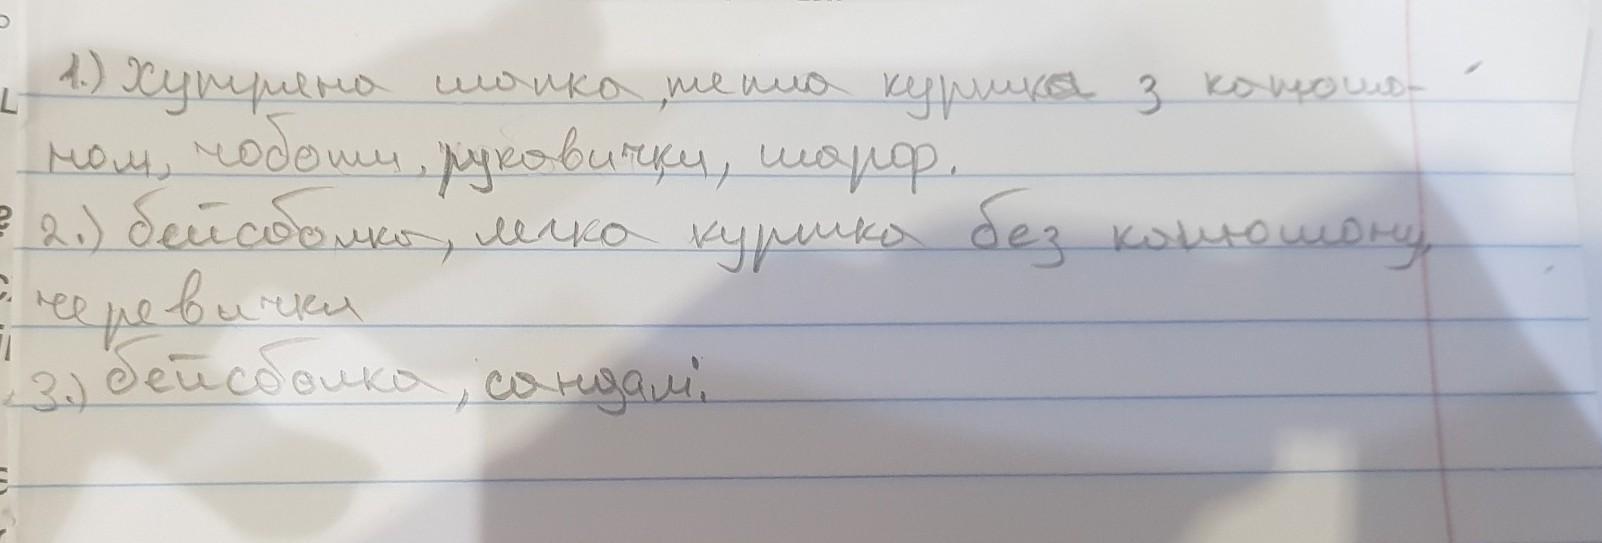 1.) Хутряна шапка, тепла куртка з капюшо-
ном, чоботи, рукавички, шарф.
2.) бейсболка, легка куртка без капюшону,
черевички
3.) бейсболка, сандалі.